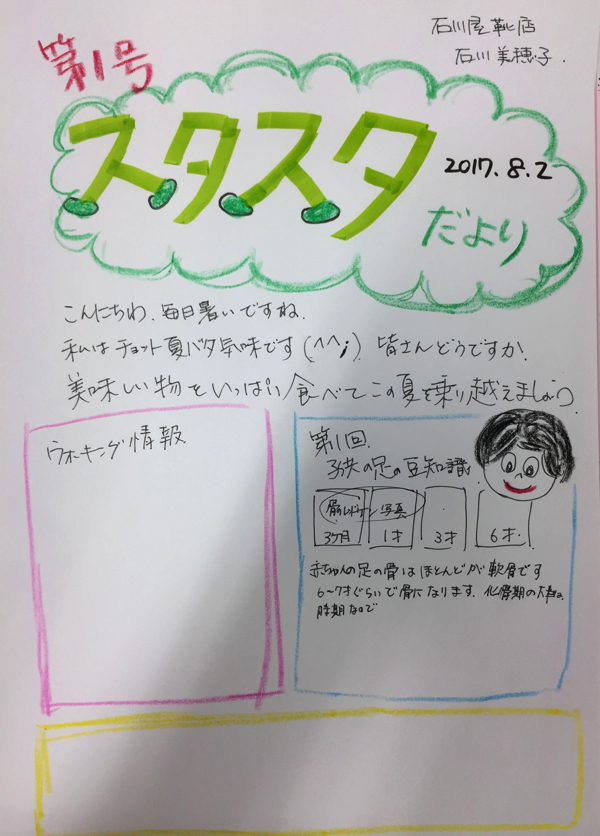 石川屋靴店
石川美穂子.
第1号
スタスタ
2017.8.2
だより
こんにちわ、毎日暑いですね.
私はチョット夏バタ気味です(^^;) 皆さんどうですか.
美味しい物をいっぱい食べてこの夏を乗り越えましょう.
ウォーキング情報
第1回.
子供の足の豆知識
骨のレントゲン写真
3ヶ月
1才
3才
6才.
赤ちゃんの足の骨はほとんどが軟骨です
6〜7才ぐらいで骨になります. 化骨期の大事な
時期なので